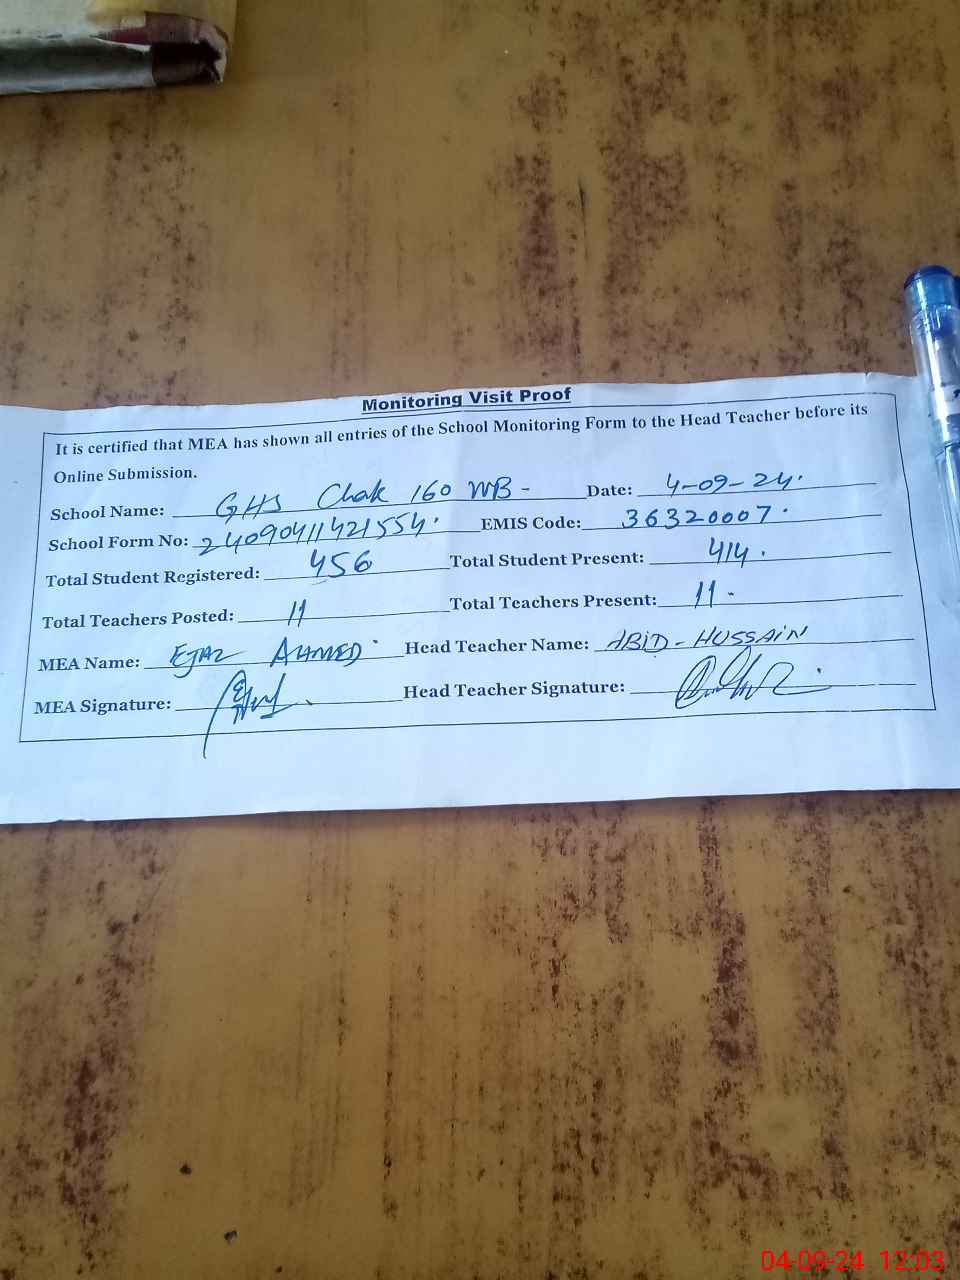 Monitoring Visit Proof
It is certified that MEA has shown all entries of the School Monitoring Form to the Head Teacher before its
Online Submission.
School Name: GHS Chak 160 WB - Date: 4-09-24.
School Form No: 24090411421554. EMIS Code: 36320007.
Total Student Registered: 456 Total Student Present: 414.
Total Teachers Posted: 11 Total Teachers Present: 11.
MEA Name: EJAZ AHMED Head Teacher Name: ABID-HUSSAIN
MEA Signature: Head Teacher Signature:
04-09-24 12:03